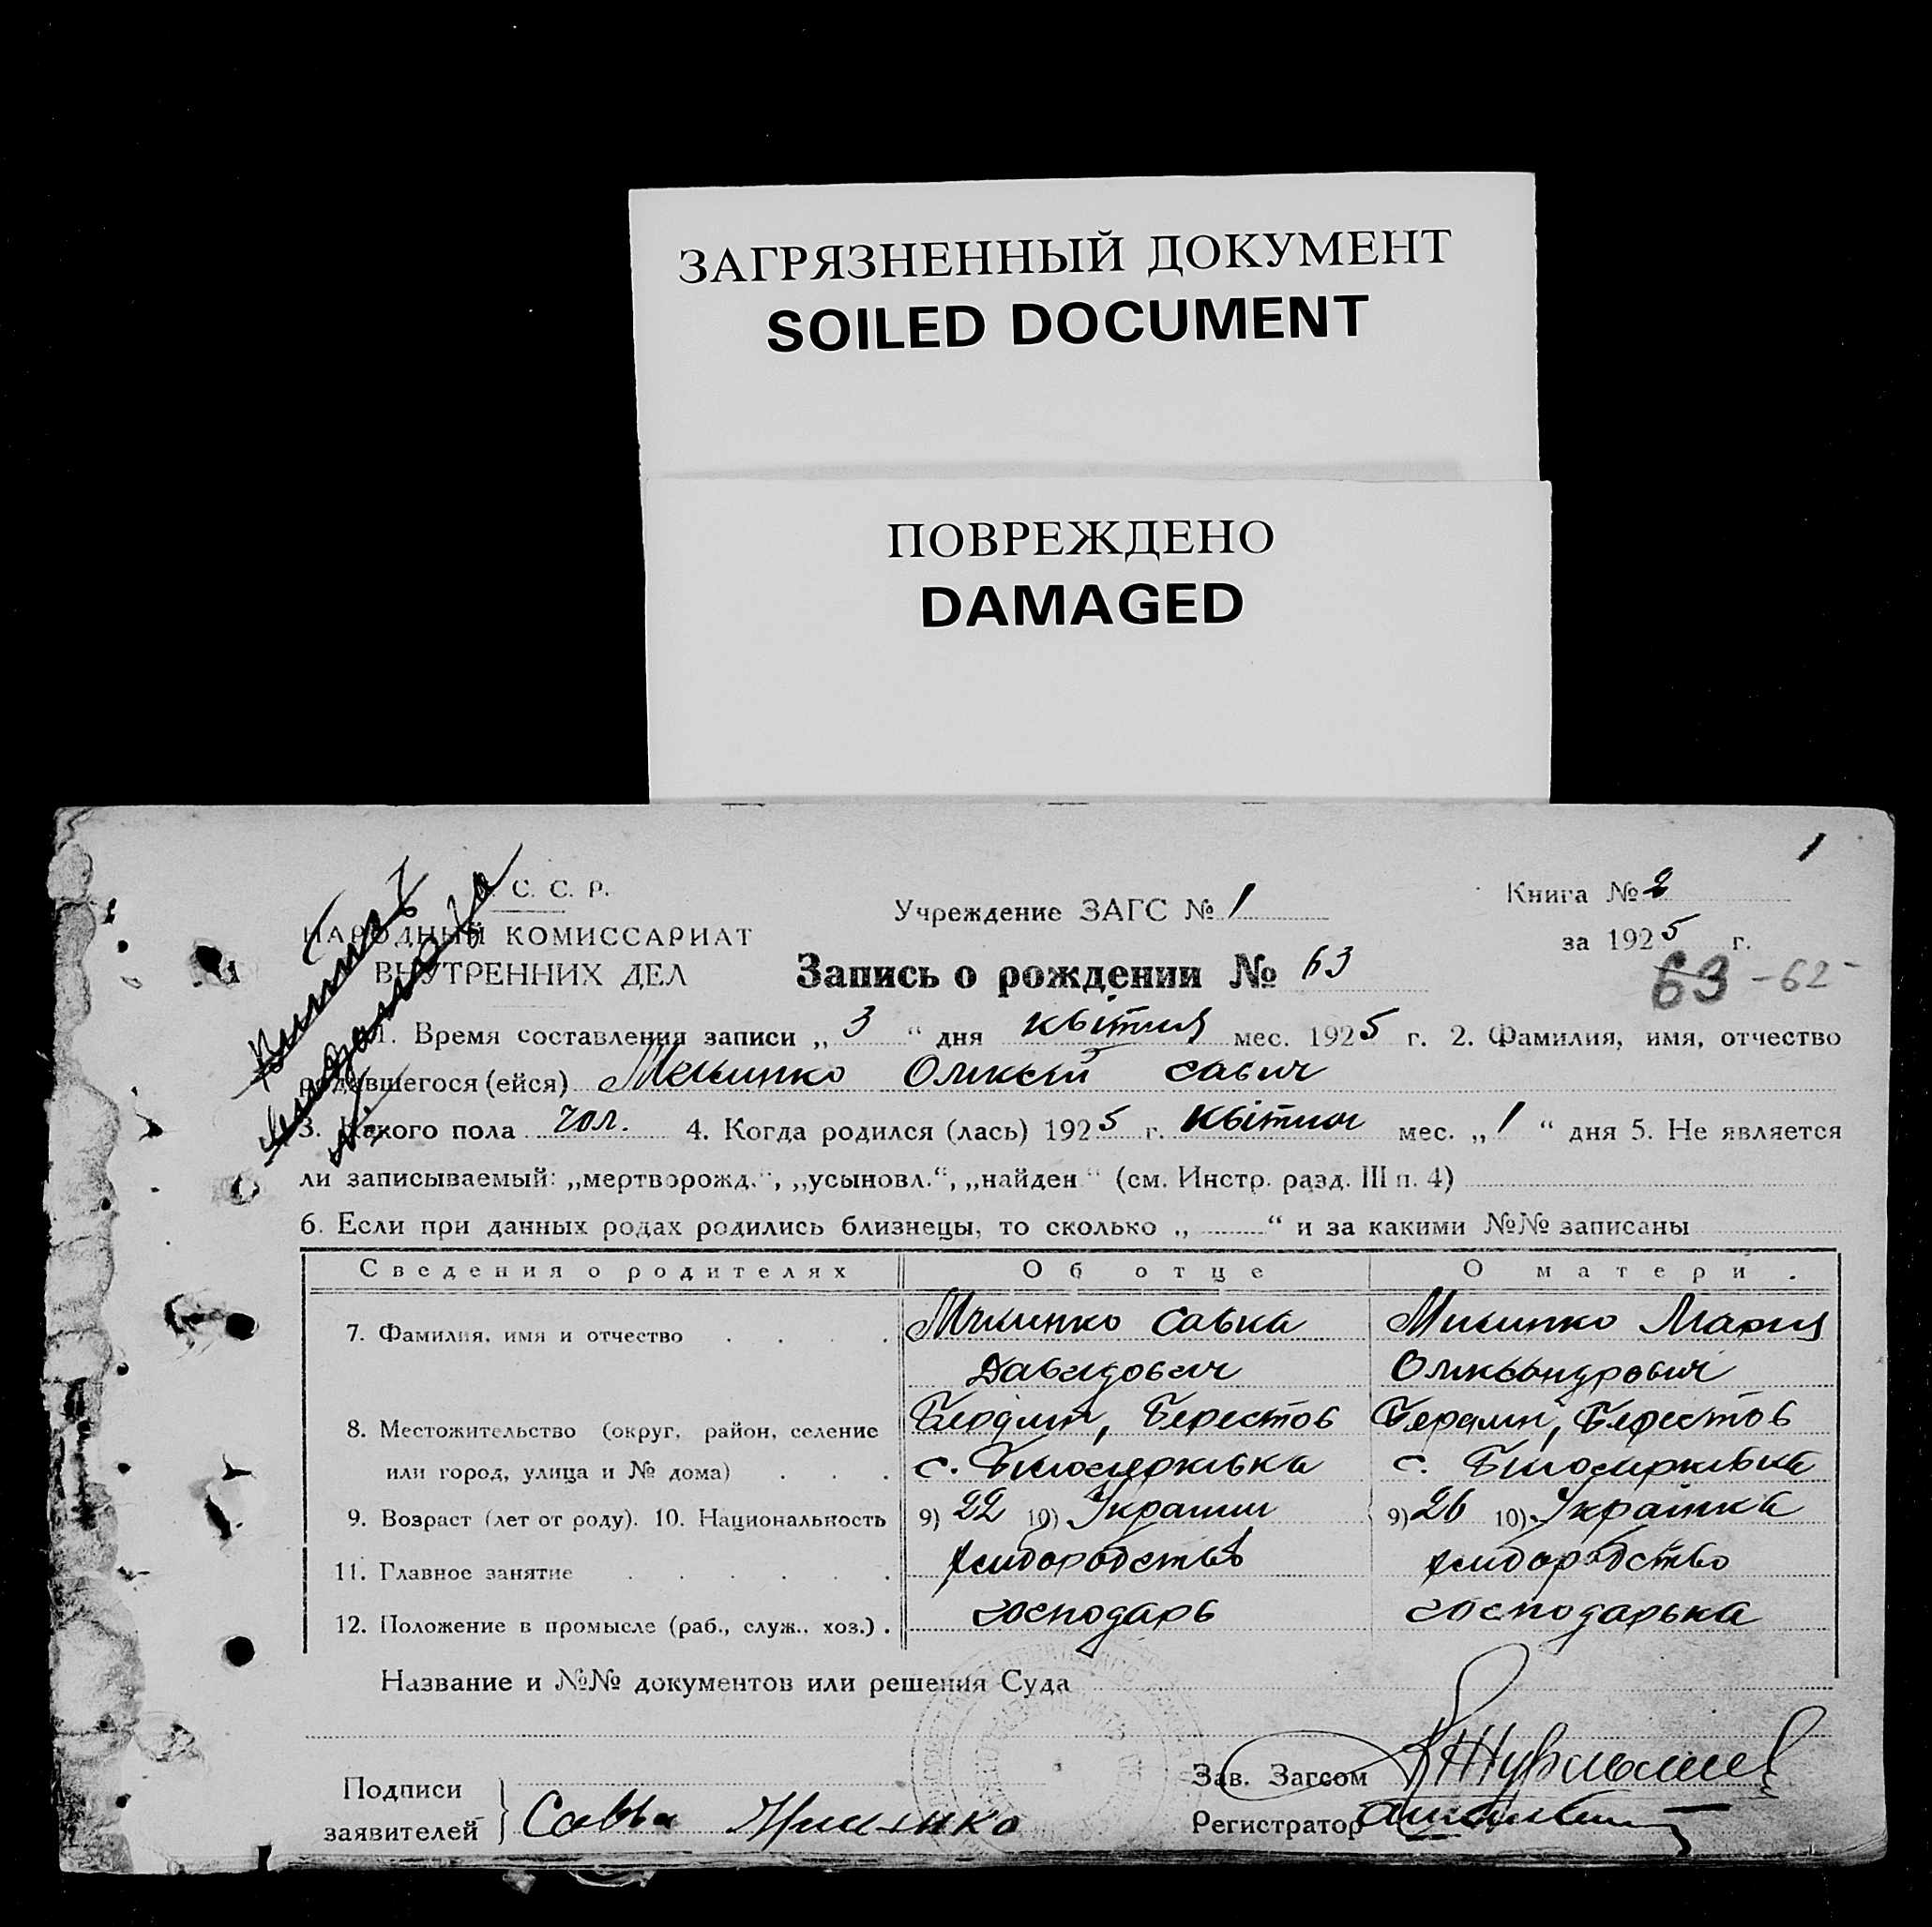 ЗАГРЯЗНЕННЫЙ ДОКУМЕНТ
SOILED DOCUMENT
ПОВРЕЖДЕНО
DAMAGED
1
С. С. Р.
НАРОДНЫЙ КОМИССАРИАТ
ВНУТРЕННИХ ДЕЛ
Учреждение ЗАГС № 1
Книга № 2
за 1925 г.
Запись о рождении № 63
63 -62-
1. Время составления записи „ 3 “ дня квітня мес. 1925 г. 2. Фамилия, имя, отчество
родившегося (ейся) Олексій Савич
3. Какого пола чол. 4. Когда родился (лась) 1925 г. квітня мес. „ 1 “ дня 5. Не является
ли записываемый: „мертворожд.“, „усыновл.“, „найден“ (см. Инстр. разд. III п. 4)
6. Если при данных родах родились близнецы, то сколько „ “ и за какими №№ записаны
Сведения о родителях Об отце О матери.
7. Фамилия, имя и отчество Савка Мария
Давидович Олександрович
8. Местожительство (округ, район, селение Бердян, Берестов Бердян, Берестов
или город, улица и № дома) с. Білоцерківка с. Білоцерківка
9. Возраст (лет от роду). 10. Национальность 9) 22 10) Українец 9) 26 10) Українка
11. Главное занятие хліборобство хліборобство
12. Положение в промысле (раб., служ., хоз.) господарь господарька
Название и №№ документов или решения Суда
Подписи
заявителей Савва
Зав. Загсом
Регистратор